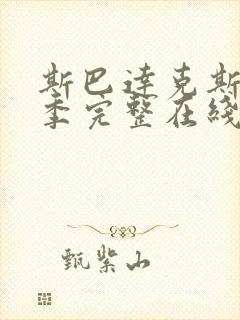 斯巴达克斯
季完整在线
甄紫山